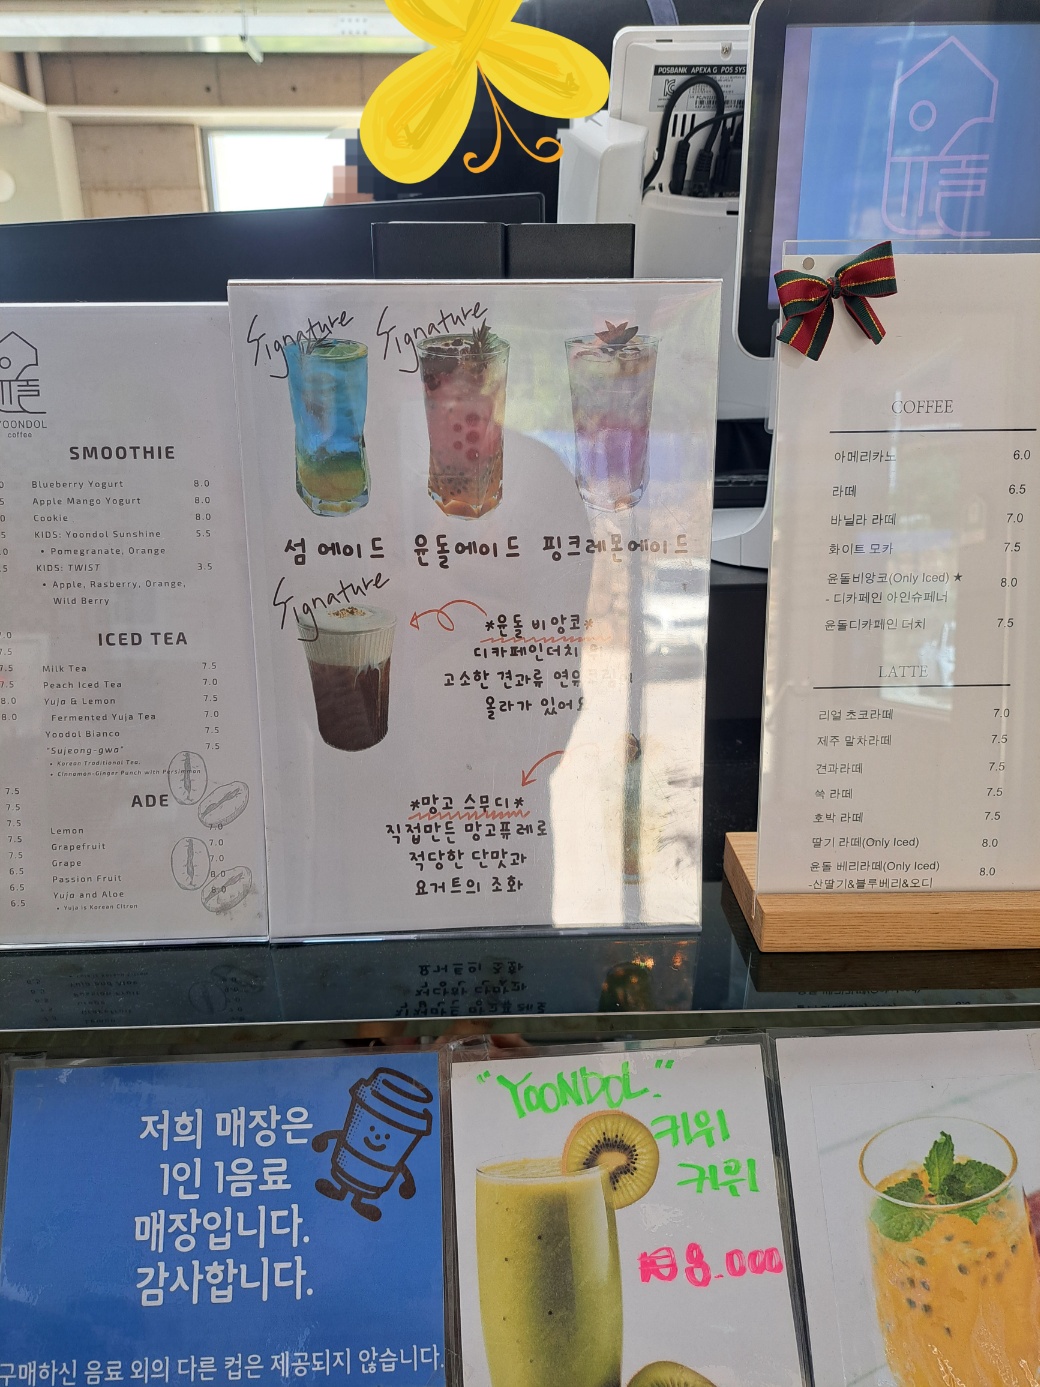 POSBANK APEXA G POS SYS
YOONDOL
coffee
SMOOTHIE
Blueberry Yogurt 8.0
Apple Mango Yogurt 8.0
Cookie 8.0
KIDS: Yoondol Sunshine 5.5
• Pomegranate, Orange
KIDS: TWIST 3.5
• Apple, Rasberry, Orange,
Wild Berry
ICED TEA
Milk Tea 7.5
Peach Iced Tea 7.0
Yuja & Lemon 7.5
Fermented Yuja Tea 7.0
Yoondol Bianco 7.5
"Sujeong-gwa" 7.5
• Korean Traditional Tea.
• Cinnamon-Ginger Punch with Persimmon
ADE
Lemon 7.0
Grapefruit 7.0
Grape 7.0
Passion Fruit 8.0
Yuja and Aloe 8.0
• Yuja is Korean Citron
7.0
7.5
7.5
8.0
8.0
7.5
7.5
7.5
7.5
6.5
6.5
6.5
Signature Signature
섬 에이드 윤돌에이드 핑크레몬에이드
Signature
*윤돌 비앙코*
디카페인더치
고소한 견과류 연유크림이
올라가 있어요
*망고 스무디*
직접만든 망고퓨레로
적당한 단맛과
요거트의 조화
COFFEE
아메리카노 6.0
라떼 6.5
바닐라 라떼 7.0
화이트 모카 7.5
윤돌비앙코(Only Iced) ★ 8.0
- 디카페인 아인슈페너
윤돌디카페인 더치 7.5
LATTE
리얼 초코라떼 7.0
제주 말차라떼 7.5
견과라떼 7.5
쑥 라떼 7.5
호박 라떼 7.5
딸기 라떼(Only Iced) 8.0
윤돌 베리라떼(Only Iced) 8.0
-산딸기&블루베리&오디
저희 매장은
1인 1음료
매장입니다.
감사합니다.
구매하신 음료 외의 다른 컵은 제공되지 않습니다.
"YOONDOL"
키위
키위
₩8.000